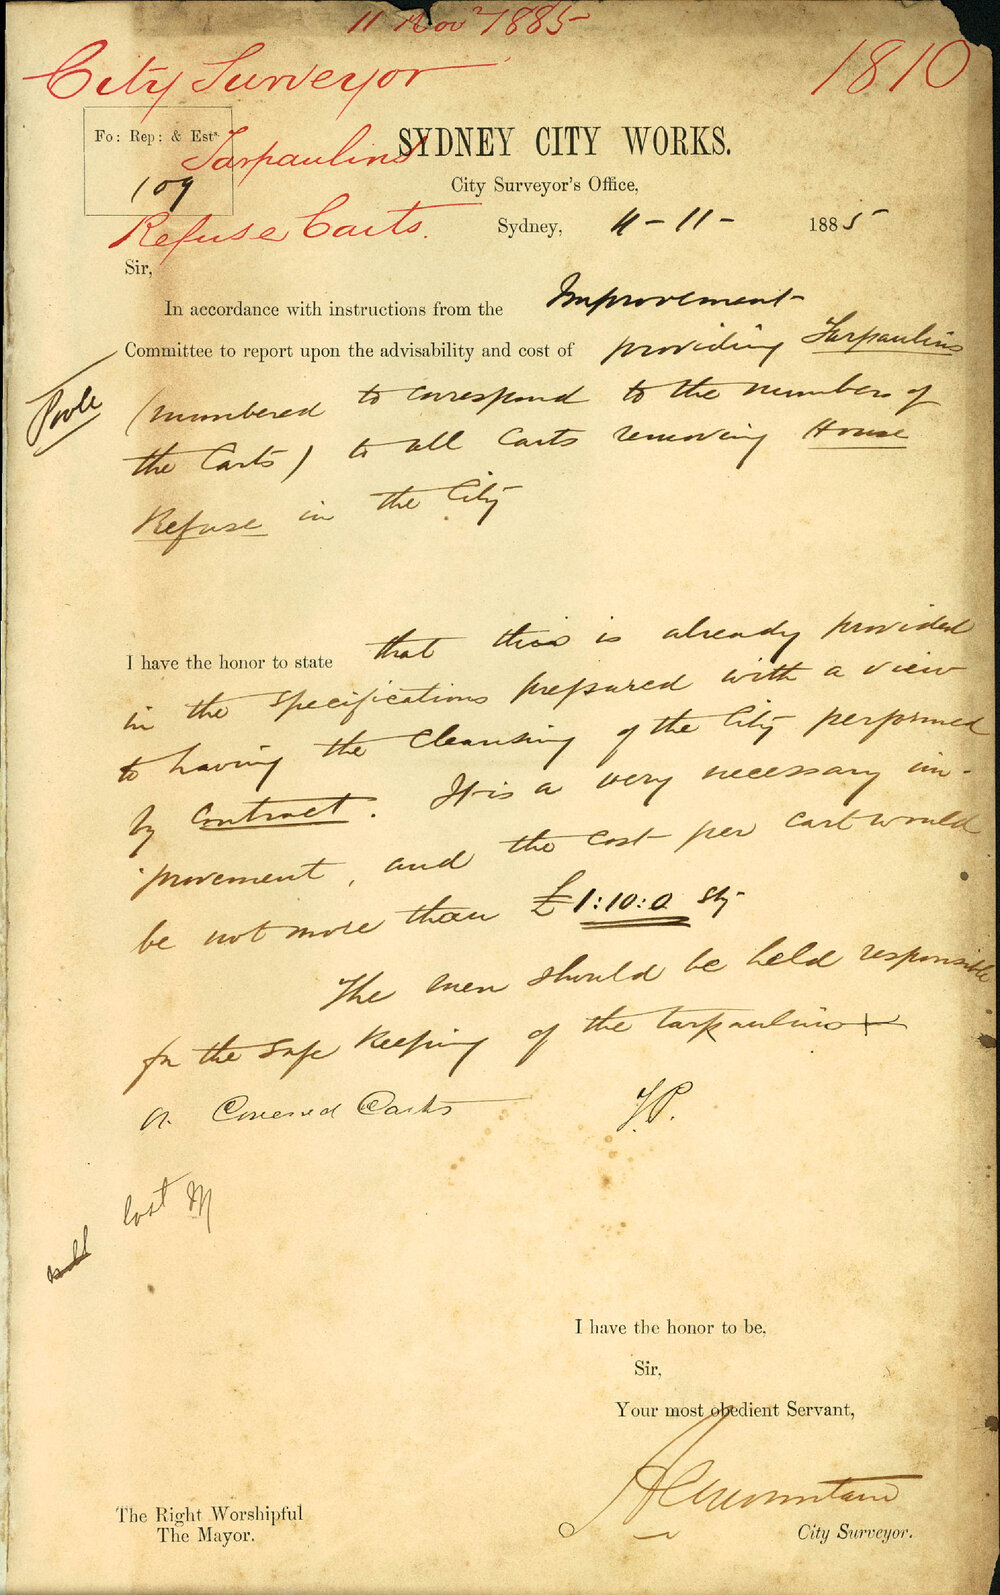 11 Nov 1885
City Surveyor
1810
Fo: Rep: & Ests.
109
Tarpaulins
Refuse Carts.
SYDNEY CITY WORKS.
City Surveyor's Office,
Sydney, 11-11- 1885
Sir,
In accordance with instructions from the Improvement
Committee to report upon the advisability and cost of providing Tarpaulins
(numbered to correspond to the numbers of
the Carts) to all Carts removing House
Refuse in the City
I have the honor to state that this is already provided
in the specifications prepared with a view
to having the Cleansing of the City performed
by Contract. It is a very necessary im-
provement, and the cost per cart would
be not more than £1:10:0
The men should be held responsible
for the safe keeping of the tarpaulins
or Covered Carts
lost M
I have the honor to be,
Sir,
Your most obedient Servant,
City Surveyor.
The Right Worshipful
The Mayor.